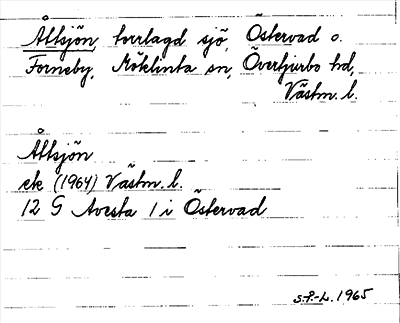 Åltsjön, torrlagd sjö, Östervad o.
Forneby, Möklinta sn, Övertjurbo hd,
Västm. l.
Åltsjön
ek (1964) Västm. l.
12 G Avesta 1 i Östervad
S.P.-L. 1965